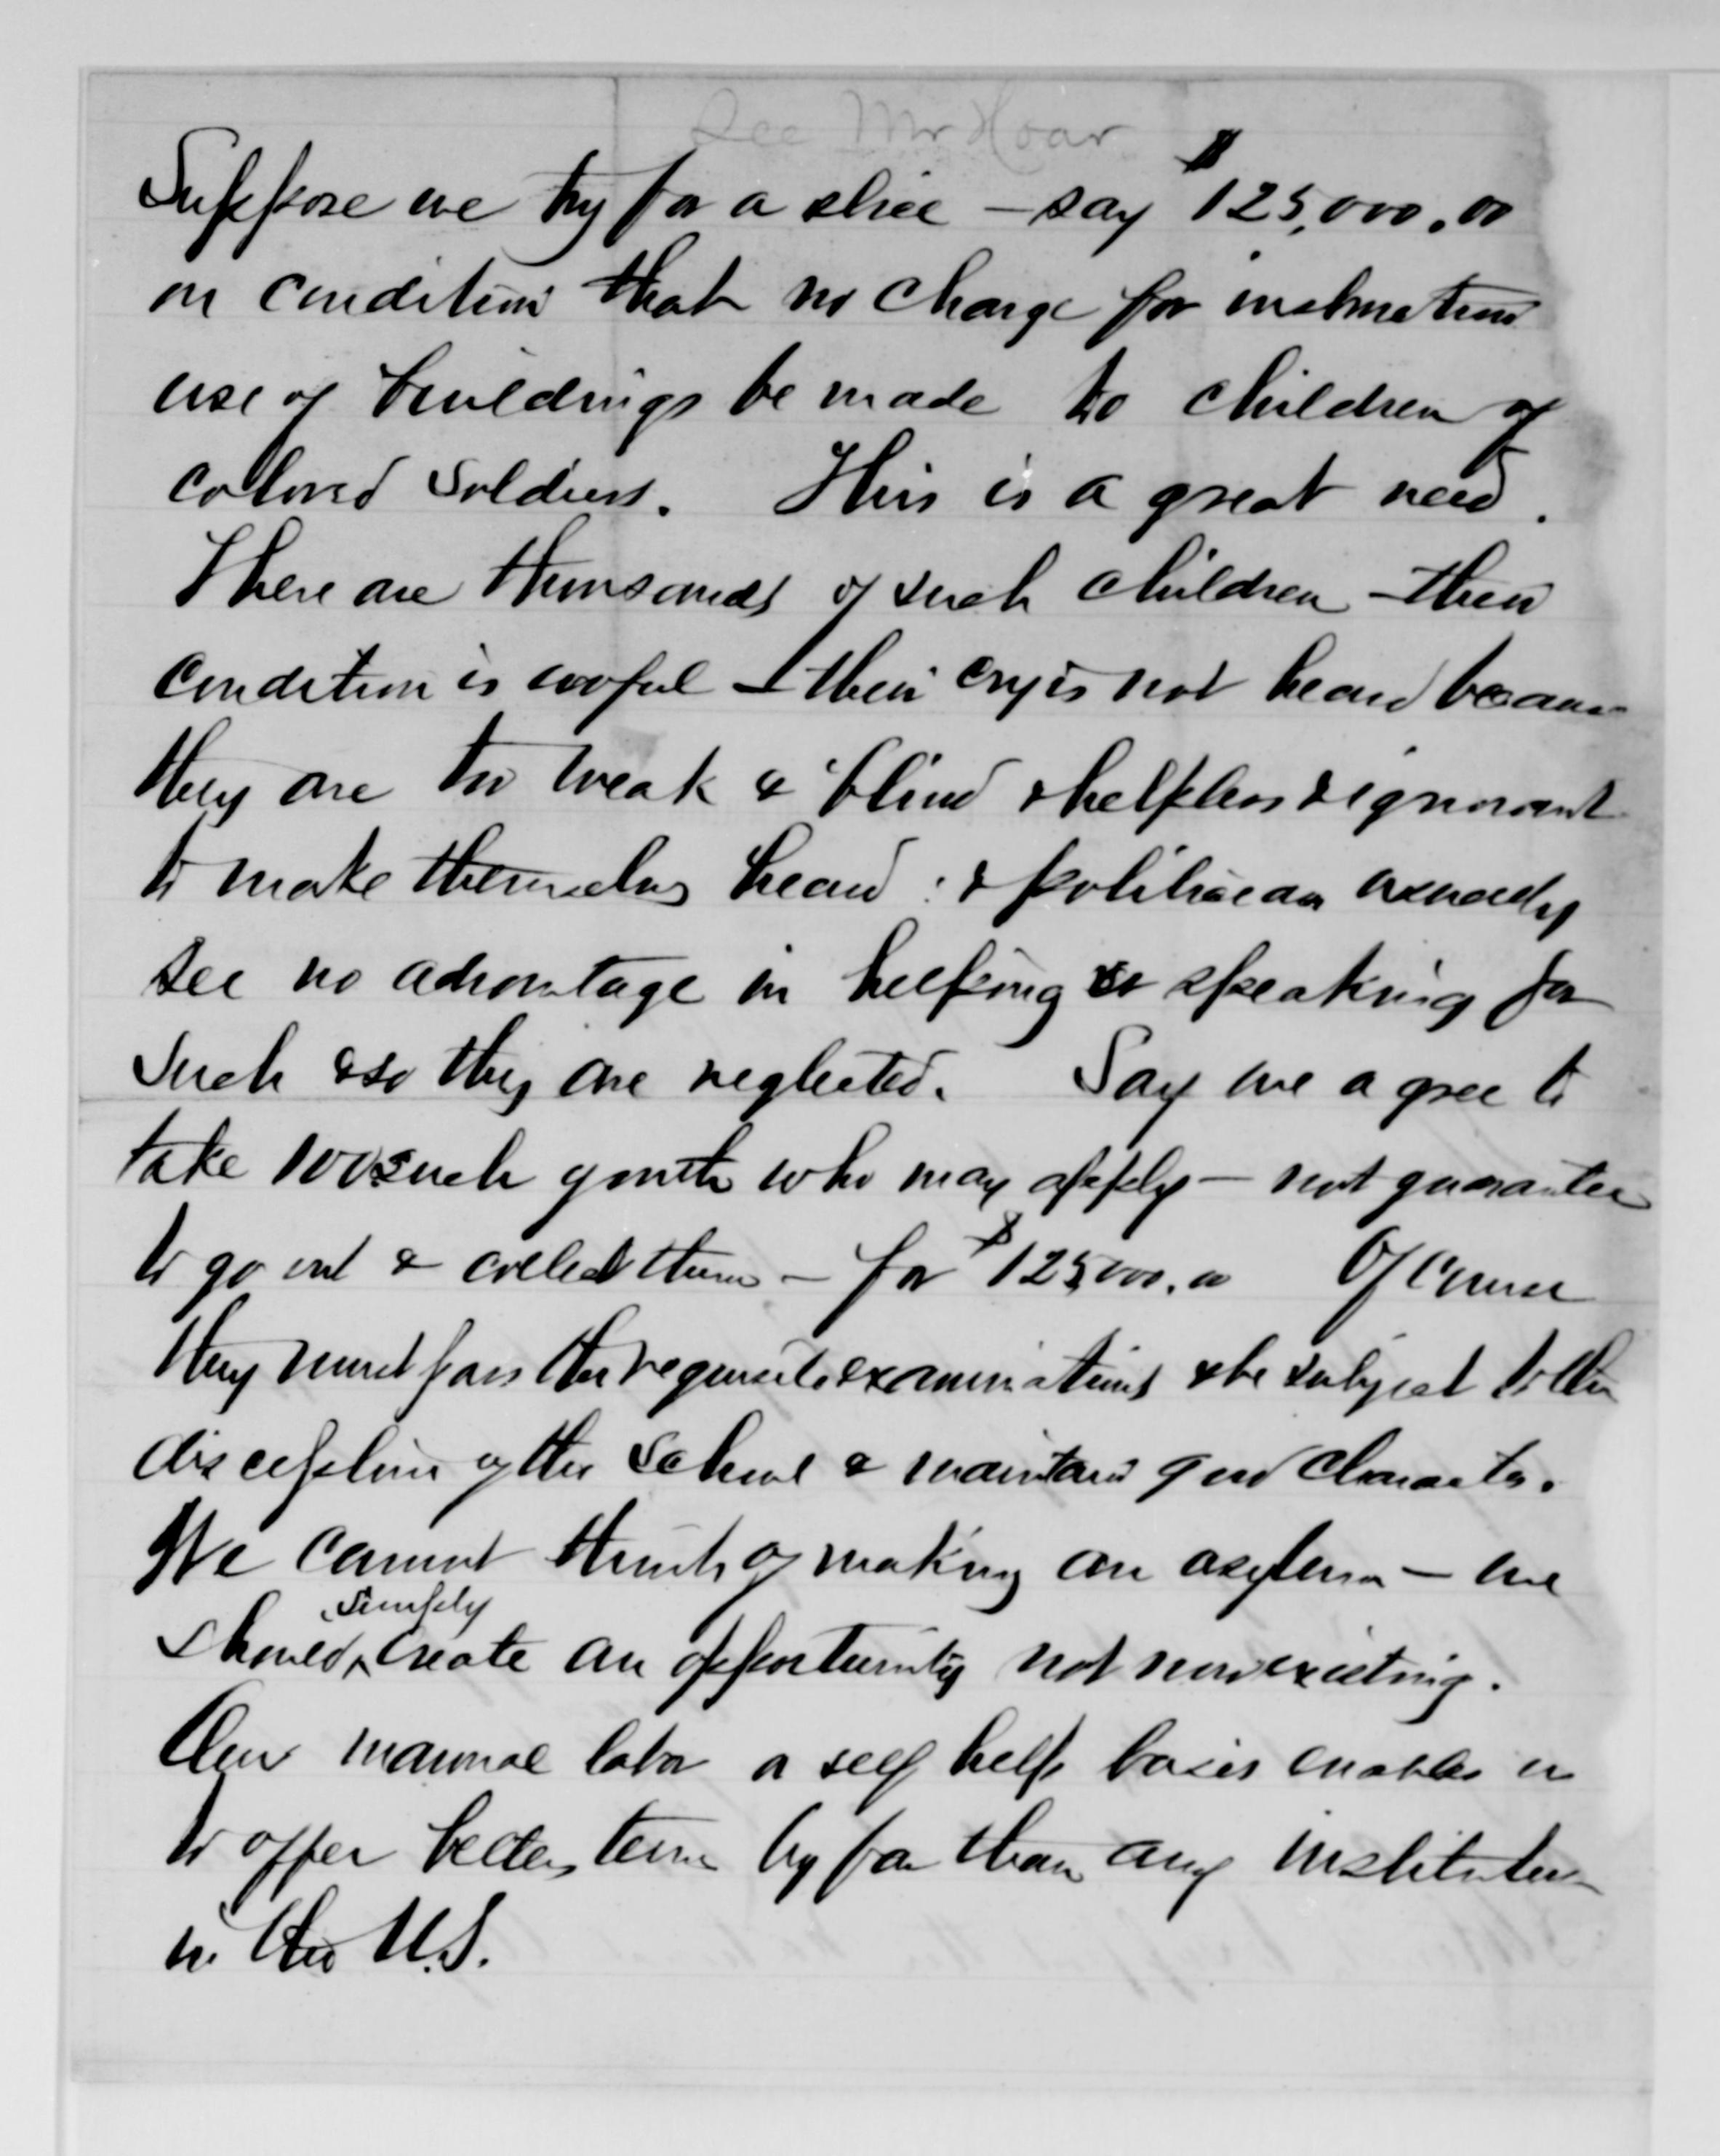 See Mr Hoar
Suppose we try for a slice – say $125,000.00
on condition that no charge for instruction
use of buildings be made to children of
colored soldiers. This is a great need.
There are thousands of such children – their
condition is woful – & their cry is not heard because
they are too weak & blind & helpless & ignorant
to make themselves heard : & politicians usually
see no advantage in helping or speaking for
such & so they are neglected. Say we agree to
take 100 such youth who may apply – not guarantee
to go out & collect them – for $125,000.00 Of course
they must pass the requisite examinations & be subject to the
discipline of the School & maintain good character.
We cannot think of making an asylum – we
should simply create an opportunity not now existing.
Our manual labor & self help basis enables us
to offer better terms by far than any institution
in the U.S.